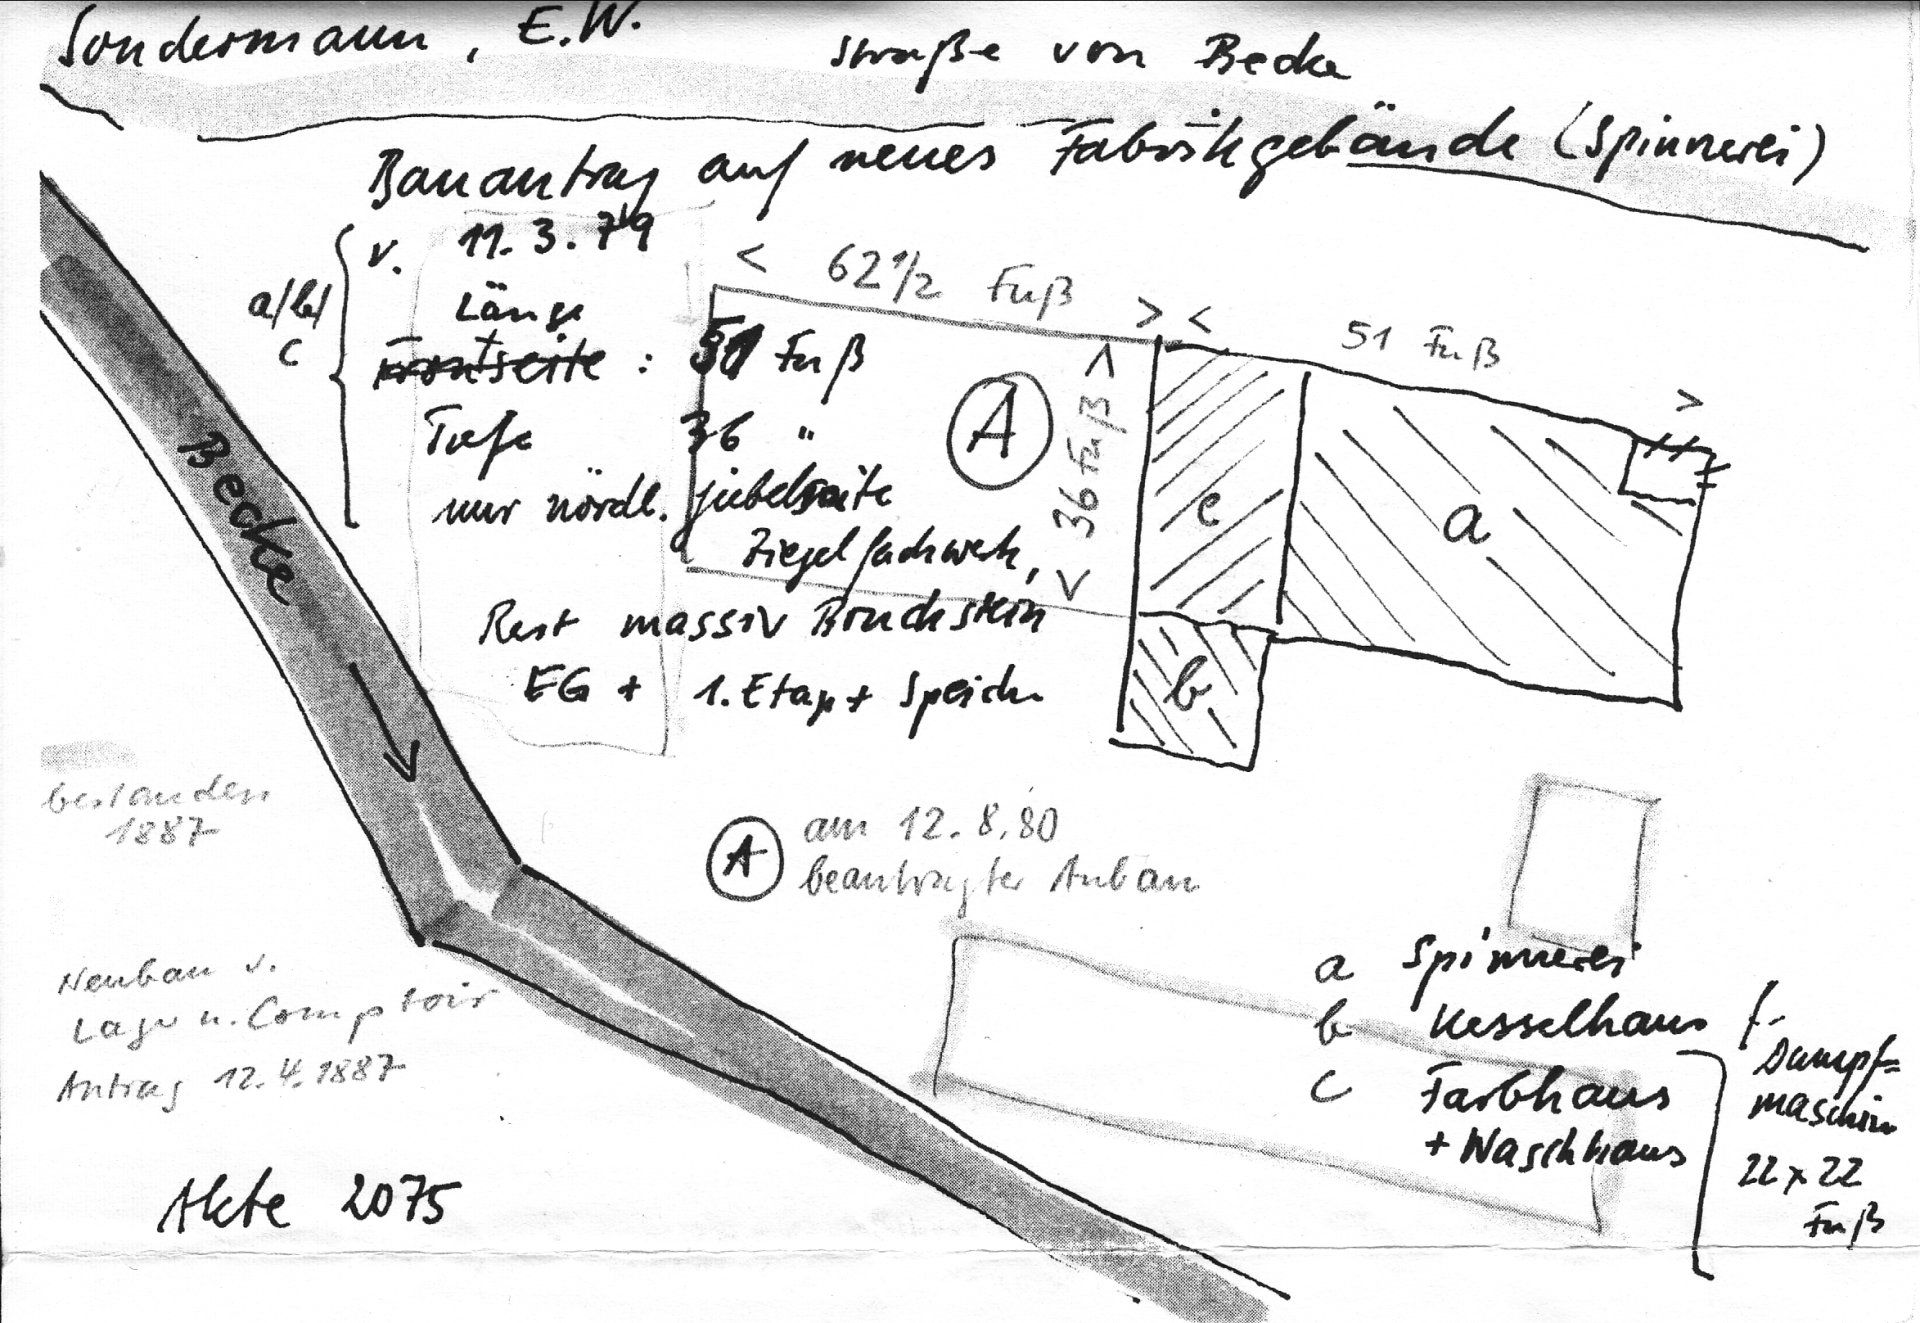 Sondermann, E.W.
Straße von Becke
Bauantrag auf neues Fabrikgebäude (Spinnerei)
v. 11.3.79
a/b/
c
Länge
Frontseite : 51 Fuß
Tiefe 36 "
nur nördl. Giebelseite
Ziegelfachwerk,
Rest massiv Bruchstein
EG + 1. Etage + Speicher
< 62 1/2 Fuß >
< 51 Fuß >
< 36 Fuß >
A
c
a
b
Becke
bestanden
1887
A am 12.8.80
beantragter Anbau
Neubau v.
Lager u. Comptoir
Antrag 12.4.1887
Akte 2075
a Spinnerei
b Kesselhaus f.
Dampf=
maschin
c Farbhaus
+ Waschhaus
22 x 22
Fuß